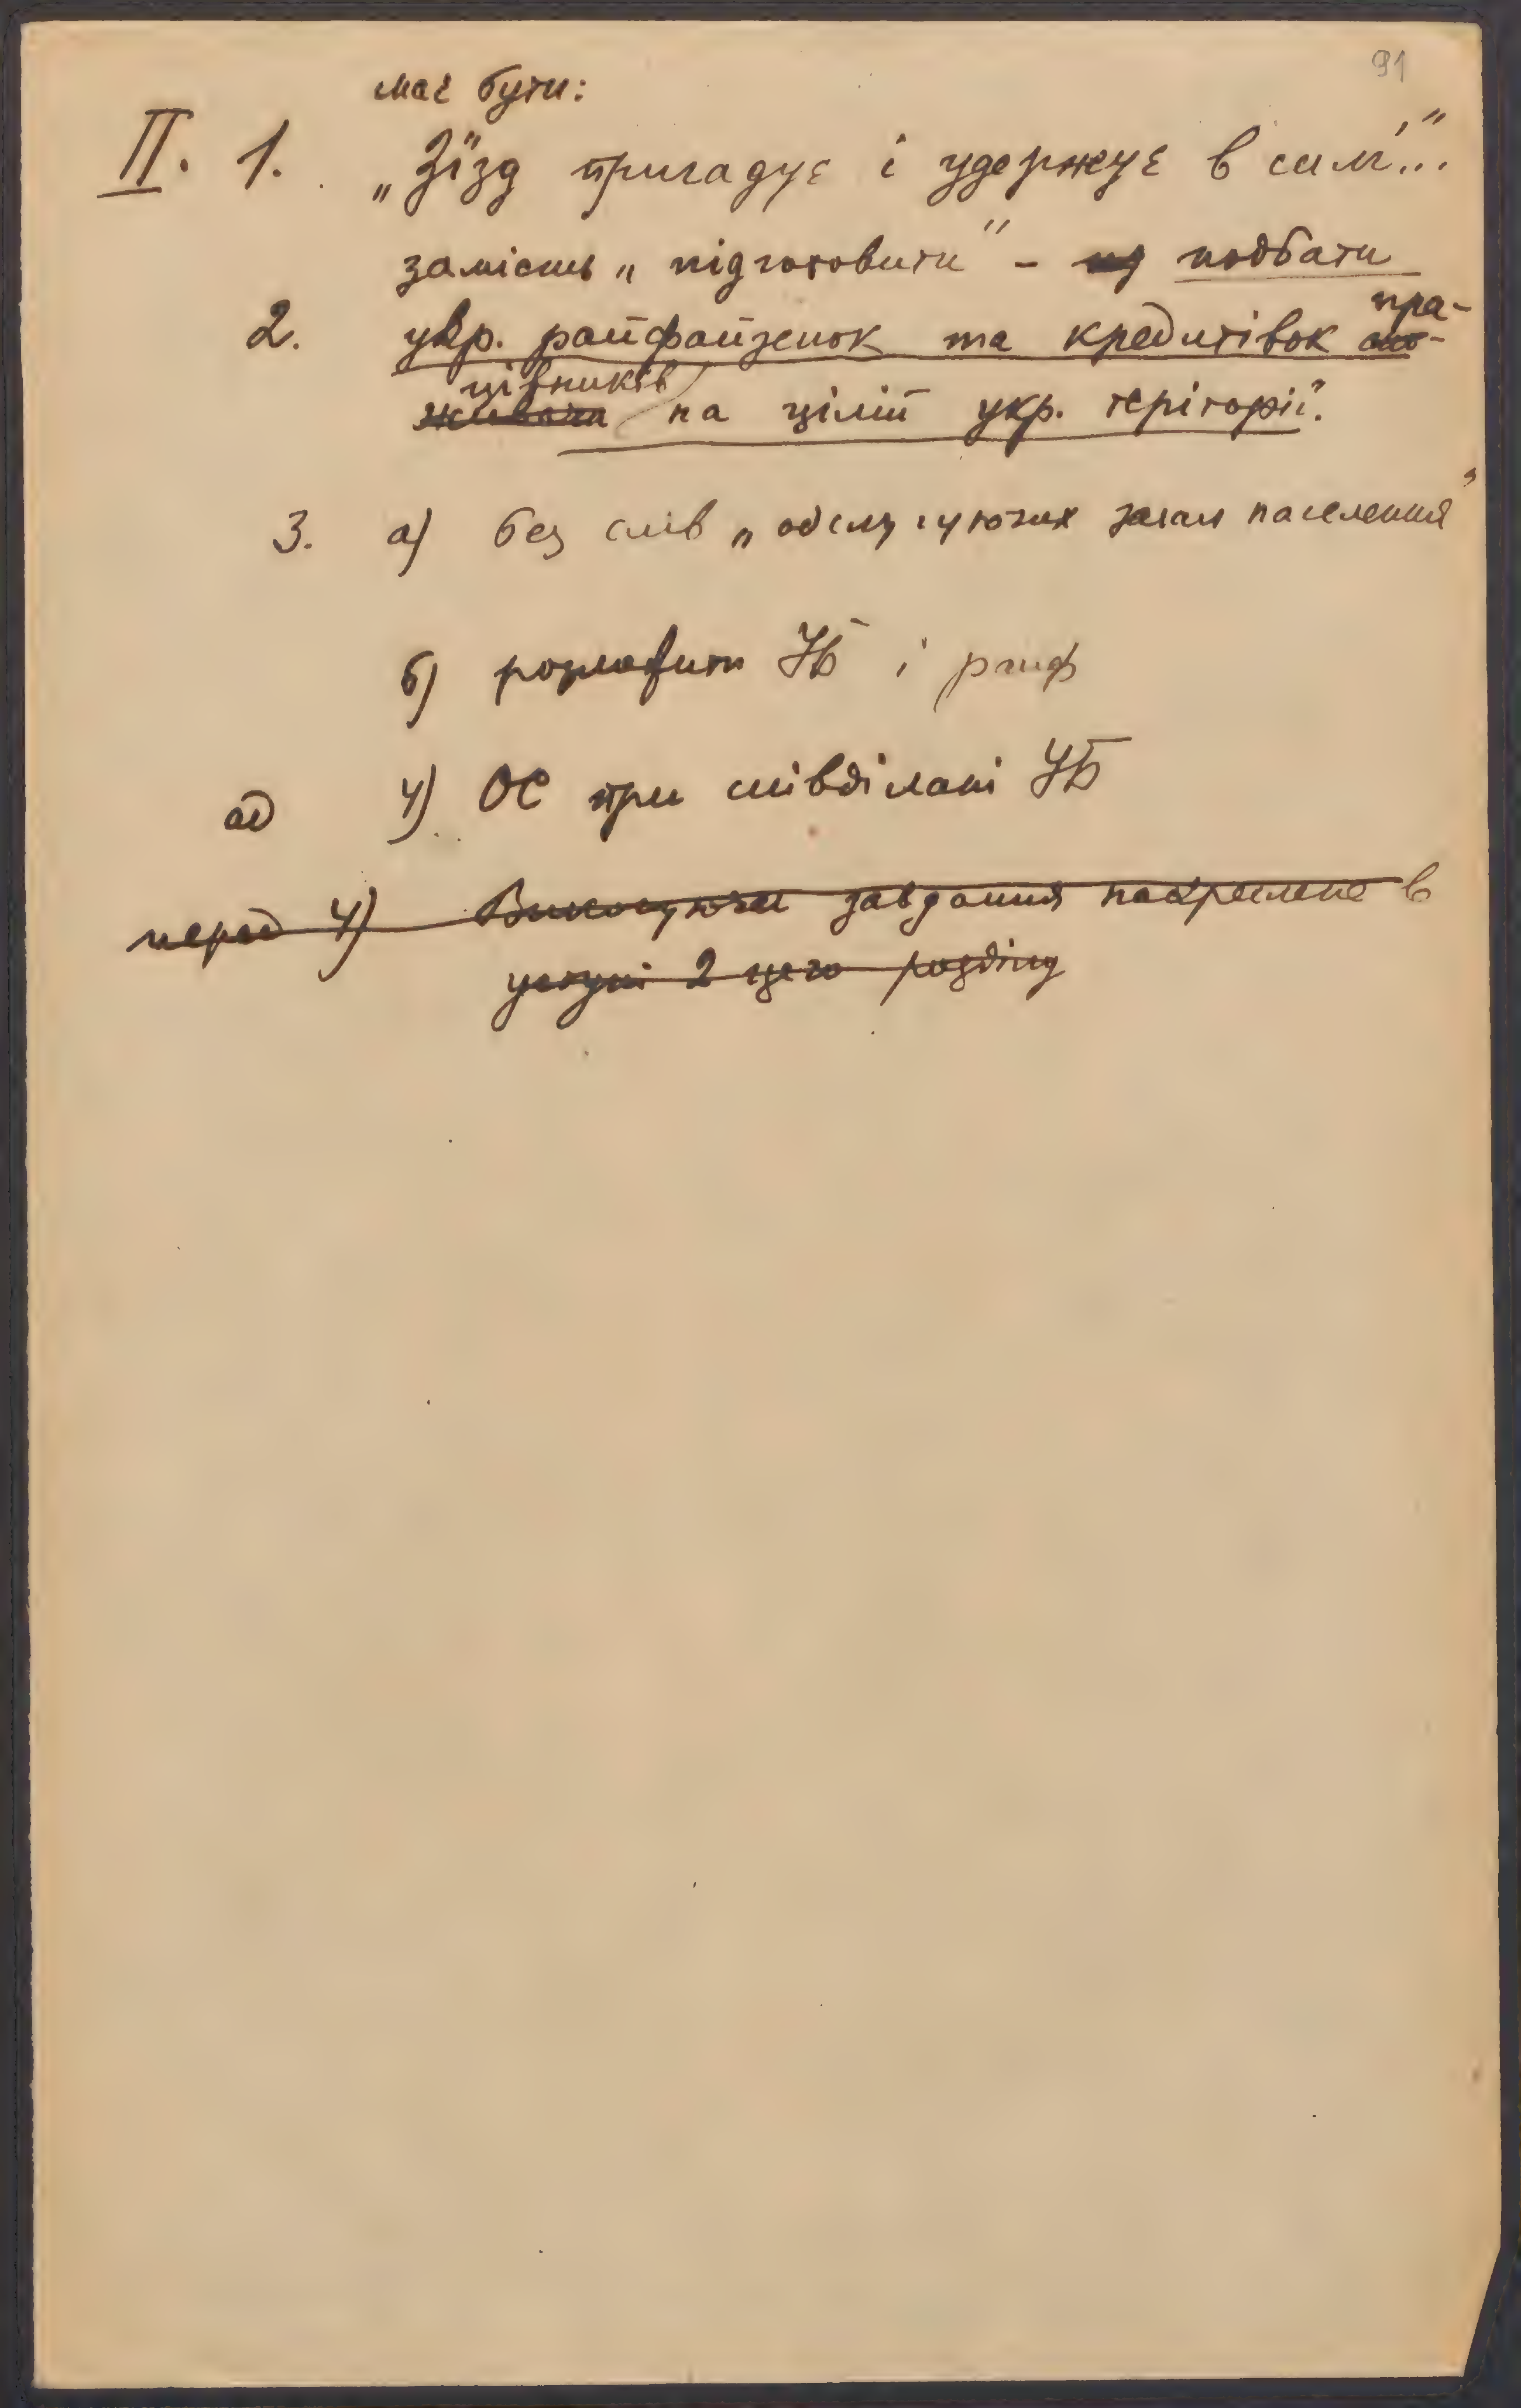 91
має бути:
II. 1. „Зїзд пригадує і удержує в силі"...
замість „підготовити" – подбати
2. укр. райфайзенок та кредитівок пра-
цівників на цілій укр. теріторії".
3. а) без слів „обслугуючих загал населення"
б) УБ і райф
ad 4) ОС при співділані УБ
перед 4) Виконуючи завдання накреслене в
уступі 2 цего розділу